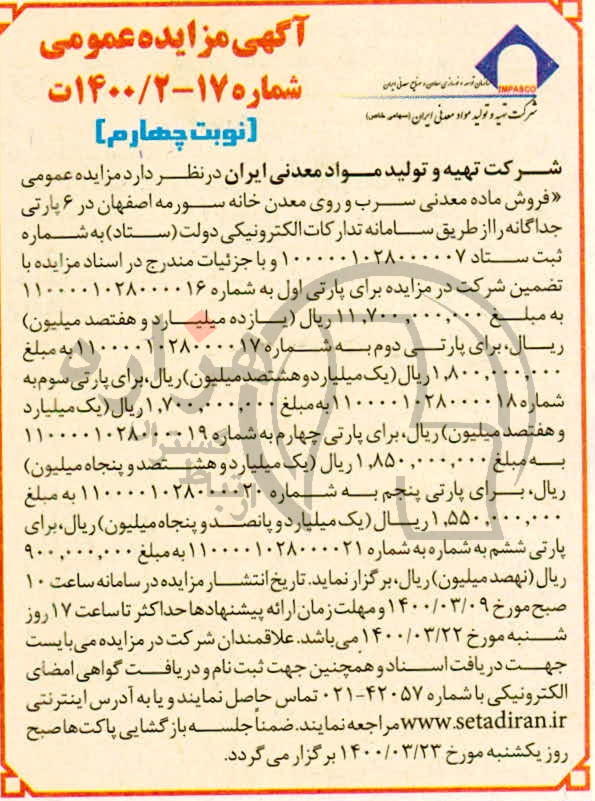 آگهی مزایده عمومی
شماره ۱۷-۱۴۰۰/۲ت
(نوبت چهارم)
IMPASCO
سازمان توسعه و نوسازی معادن و صنایع معدنی ایران
شرکت تهیه و تولید مواد معدنی ایران (سهامی خاص)
شرکت تهیه و تولید مواد معدنی ایران درنظر دارد مزایده عمومی
«فروش ماده معدنی سرب و روی معدن خانه سورمه اصفهان در ۶ پارتی
جداگانه را از طریق سامانه تدارکات الکترونیکی دولت (ستاد) به شماره
ثبت ستاد ۱۰۰۰۰۰۱۰۲۸۰۰۰۰۰۷ و با جزئیات مندرج در اسناد مزایده با
تضمین شرکت در مزایده برای پارتی اول به شماره ۱۱۰۰۰۰۱۰۲۸۰۰۰۰۱۶
به مبلغ ۱۱,۷۰۰,۰۰۰,۰۰۰ ریال (یازده میلیارد و هفتصد میلیون)
ریال، برای پارتی دوم به شماره ۱۱۰۰۰۰۱۰۲۸۰۰۰۰۱۷ به مبلغ
۱,۸۰۰,۰۰۰,۰۰۰ ریال (یک میلیارد و هشتصد میلیون) ریال، برای پارتی سوم به
شماره ۱۱۰۰۰۰۱۰۲۸۰۰۰۰۱۸ به مبلغ ۱,۷۰۰,۰۰۰,۰۰۰ ریال (یک میلیارد
و هفتصد میلیون) ریال، برای پارتی چهارم به شماره ۱۱۰۰۰۰۱۰۲۸۰۰۰۰۱۹
به مبلغ ۱,۸۵۰,۰۰۰,۰۰۰ ریال (یک میلیارد و هشتصد و پنجاه میلیون)
ریال، برای پارتی پنجم به شماره ۱۱۰۰۰۰۱۰۲۸۰۰۰۰۲۰ به مبلغ
۱,۵۵۰,۰۰۰,۰۰۰ ریال (یک میلیارد و پانصد و پنجاه میلیون) ریال، برای
پارتی ششم به شماره به شماره ۱۱۰۰۰۰۱۰۲۸۰۰۰۰۲۱ به مبلغ ۹۰۰,۰۰۰,۰۰۰
ریال (نهصد میلیون) ریال، برگزار نماید. تاریخ انتشار مزایده در سامانه ساعت ۱۰
صبح مورخ ۱۴۰۰/۰۳/۰۹ و مهلت زمان ارائه پیشنهادها حداکثر تا ساعت ۱۷ روز
شنبه مورخ ۱۴۰۰/۰۳/۲۲ می‌باشد. علاقمندان شرکت در مزایده می‌بایست
جهت دریافت اسناد و همچنین جهت ثبت نام و دریافت گواهی امضای
الکترونیکی با شماره ۴۲۰۵۷-۰۲۱ تماس حاصل نمایند و یا به آدرس اینترنتی
www.setadiran.ir مراجعه نمایند. ضمناً جلسه بازگشایی پاکت‌ها صبح
روز یکشنبه مورخ ۱۴۰۰/۰۳/۲۳ برگزار می‌گردد.
هزاره